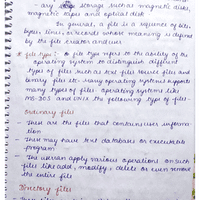 ary storage such as magnetic disks,
magnetic tapes and optical disk
In general, a file is a sequence of bits,
bytes, lines, or records whose meaning is defined
by the file creator and user
* File type : A file type refers to the ability of the
operating system to distinguish different
types of files such as text files source files and
binary files etc. Many operating systems support
many types of files. Operating systems like
MS-DOS and Unix the following type of files-
Ordinary files
- These are the files that contain user information
- These may have text database or executable
program
- The user can apply various operations on such
files like add, modify, delete or even remove
the entire file
Directory files